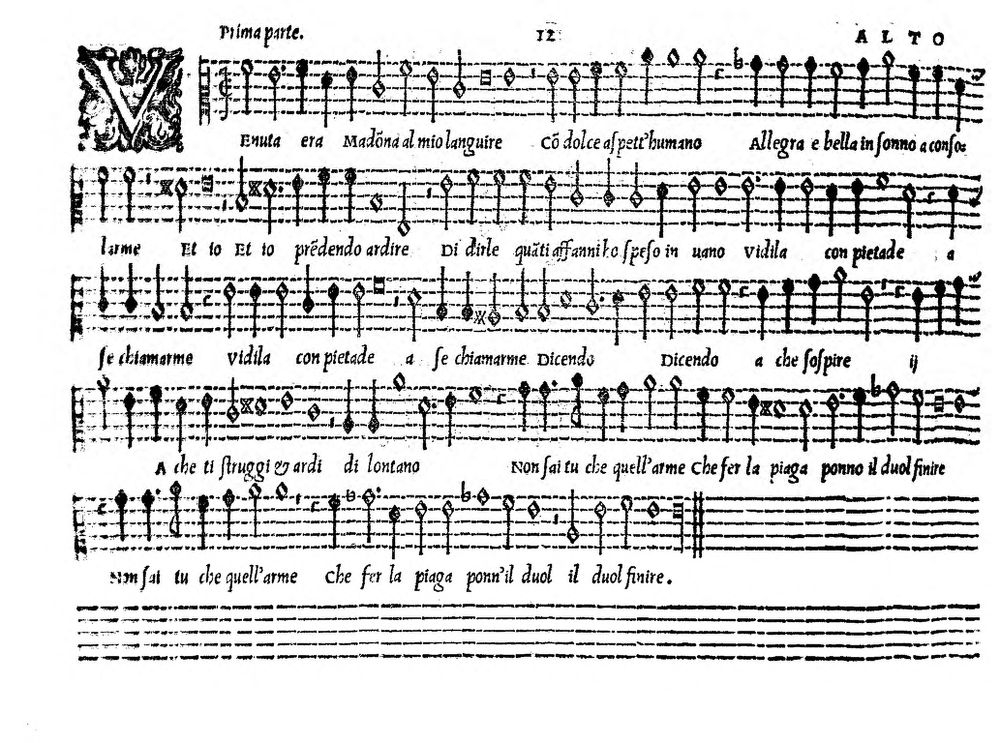 Prima parte. 12 ALTO
VEnuta era Madõna al mio languire Cõ dolce aſpett'humano Allegra e bella in ſonno a conſo=
larme Et io Et io prẽdendo ardire Di dirle quãti affanni ho ſpeſo in uano Vidila con pietade a
ſe chiamarme Vidila con pietade a ſe chiamarme Dicendo Dicendo a che ſoſpire ij
A che ti ſtruggi & ardi di lontano Non ſai tu che quell'arme Che fer la piaga ponno il duol finire
Non ſai tu che quell'arme Che fer la piaga ponn'il duol il duol finire.